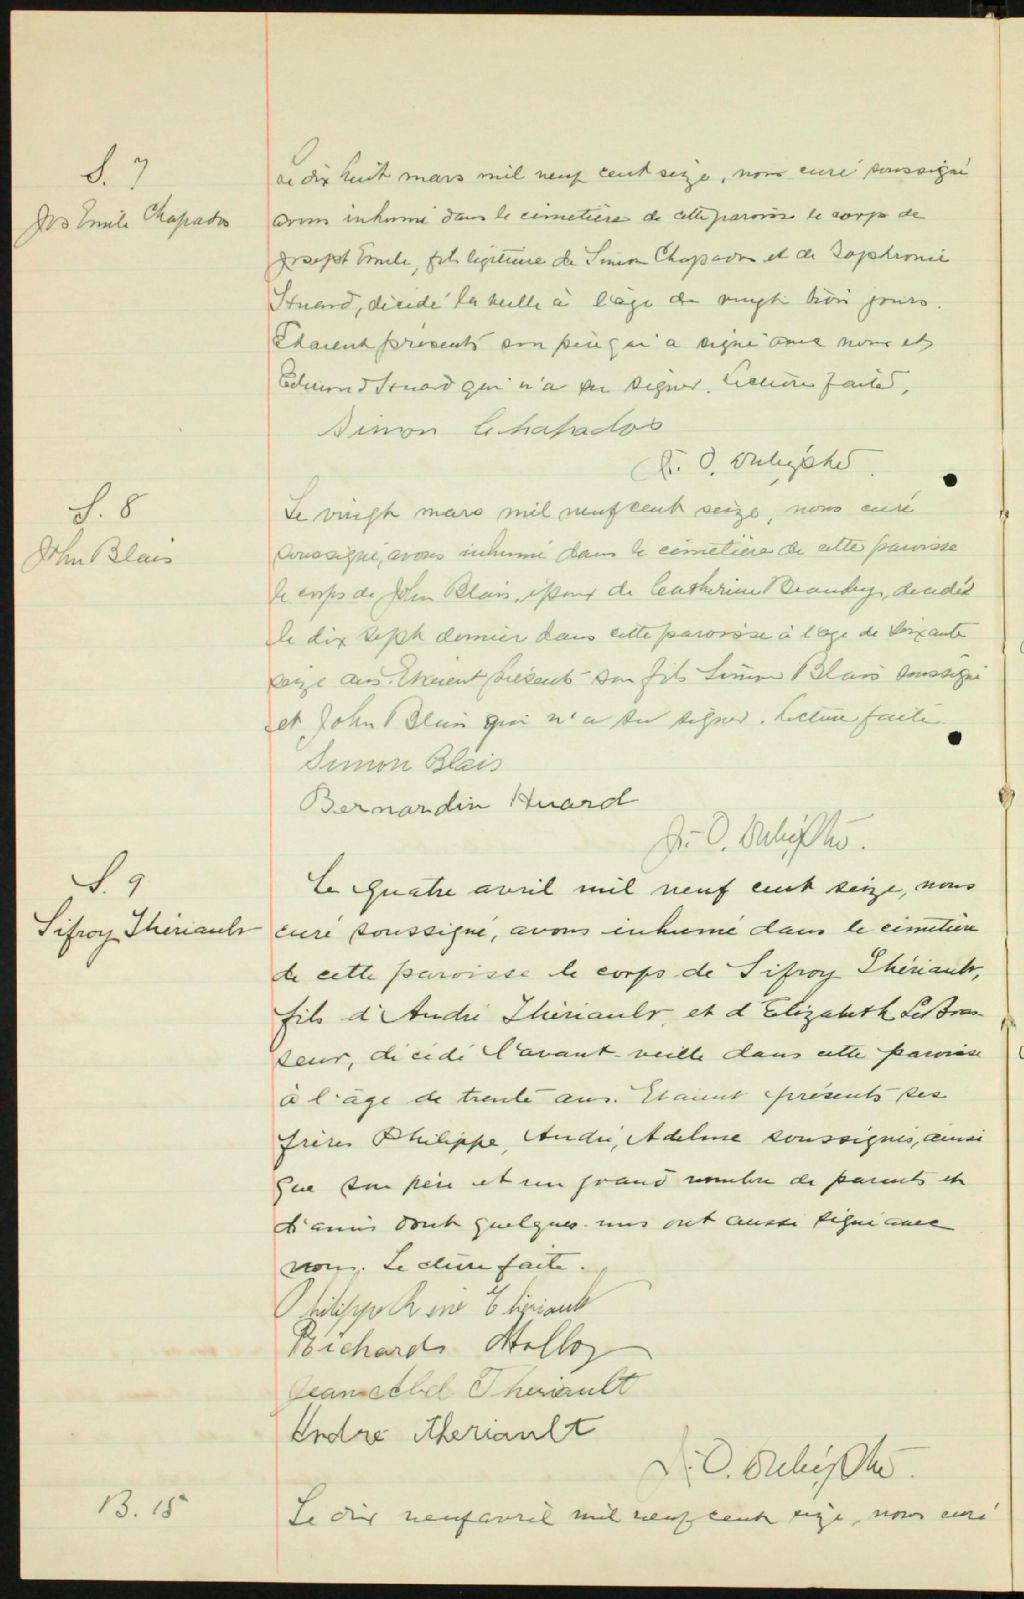 S. 7
Jos Emile Chapados
Le dix huit mars mil neuf cent seize, nous curé soussigné
avons inhumé dans le cimetière de cette paroisse le corps de
Joseph Emile, fils légitime de Simon Chapados et de Sophronie
Huard, décédé la veille à l'âge de vingt trois jours.
Etaient présents son père qui a signé avec nous et
Edmond Huard qui n'a su signer. Lecture faite.
Simon Chapados
J. O. Dubé, ptre
S. 8
John Blais
Le vingt mars mil neuf cent seize, nous curé
soussigné, avons inhumé dans le cimetière de cette paroisse
le corps de John Blais, époux de Catherine Beaudry, décédé
le dix sept dernier dans cette paroisse à l'age de soixante
seize ans. Etaient présents son fils Simon Blais soussigné
et John Blais qui n'a su signer. Lecture faite.
Simon Blais
Bernardin Huard
J. O. Dubé, Ptre.
S. 9
Sifroy Thériault
Le quatre avril mil neuf cent seize, nous
curé soussigné, avons inhumé dans le cimetière
de cette paroisse le corps de Sifroy Thériault,
fils d'André Thériault et d'Elizabeth LeBras-
seur, décédé l'avant-veille dans cette paroisse
à l'âge de trente ans. Etaient présents ses
frères Philippe, André, Adelme soussignés, ainsi
que son père et un grand nombre de parents et
d'amis dont quelques-uns ont aussi signé avec
nous. Lecture faite.
Philippe René Thériault
Richards Molloy
Jean Abel Theriault
André Theriault
J. O. Dubé, Ptre.
B. 15
Le dix neuf avril mil neuf cent seize, nous curé